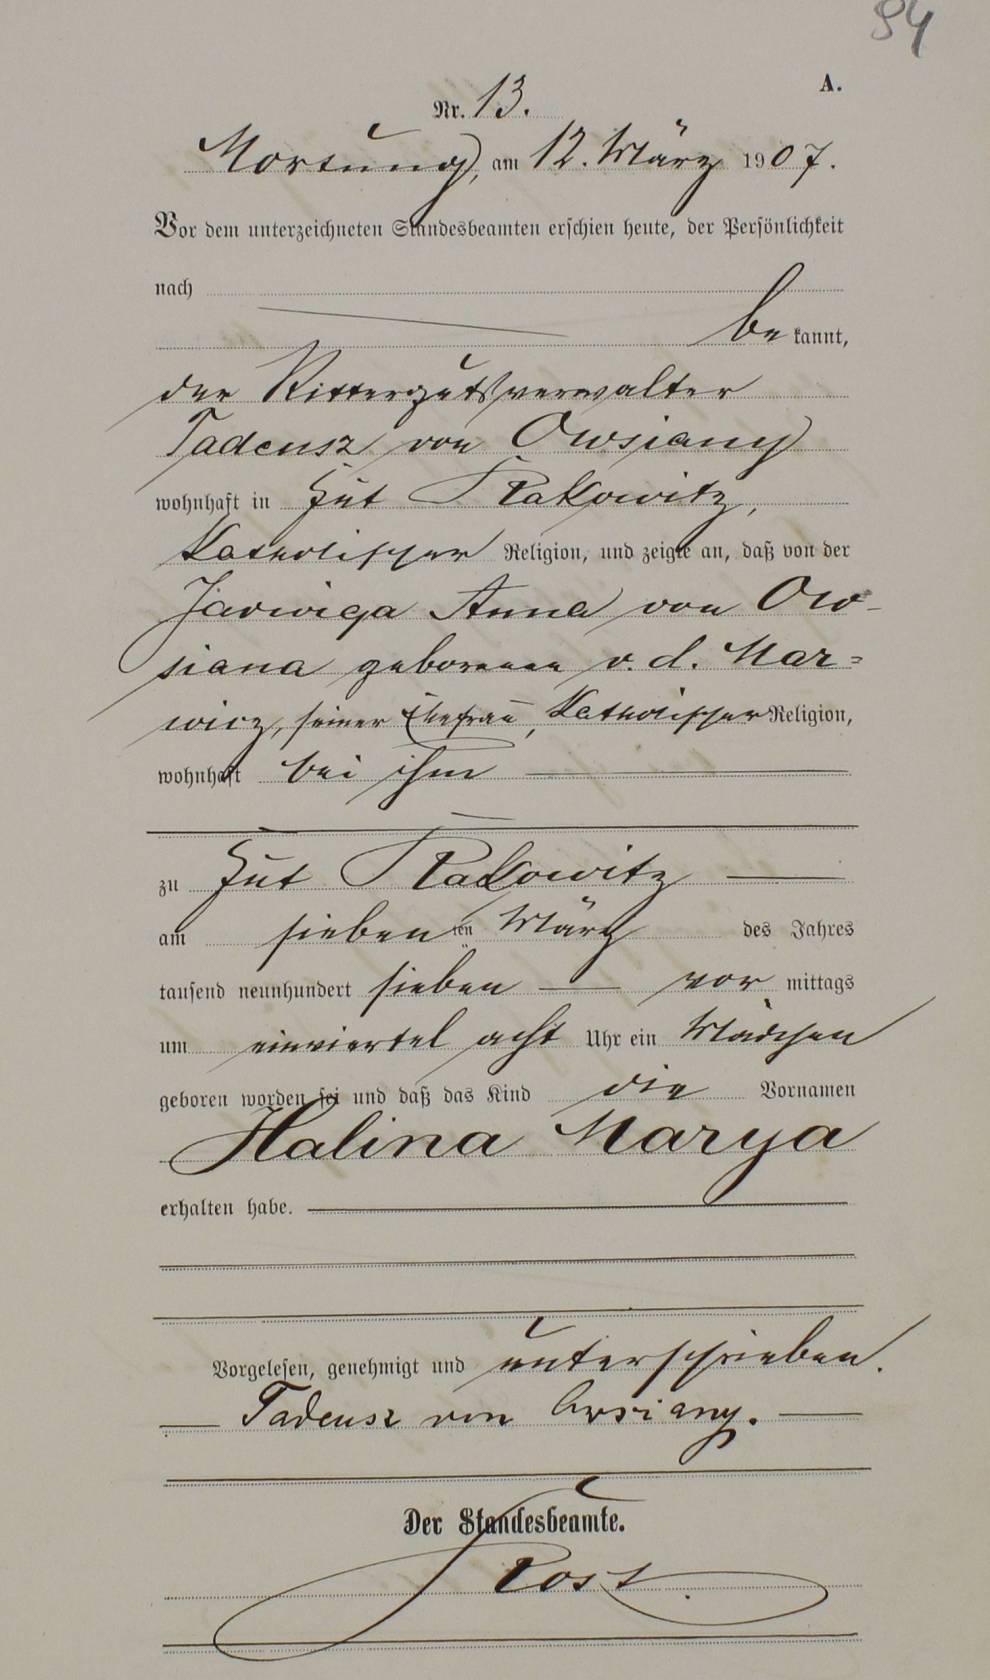 94
A.
Nr. 13.
Mortung, am 12. März 1907.
Vor dem unterzeichneten Standesbeamten erschien heute, der Persönlichkeit
nach
bekannt,
der Rittergutsverwalter
Tadeusz von Owsiany
wohnhaft in Gut Rakowitz,
katholischer Religion, und zeigte an, daß von der
Jadwiga Anna von Ow-
siana geborenen v. d. Mar=
wicz, seiner Ehefrau, katholischer Religion,
wohnhaft bei ihm
zu Gut Rakowitz
am siebenten März des Jahres
tausend neunhundert sieben vor mittags
um einviertel acht Uhr ein Mädchen
geboren worden sei und daß das Kind die Vornamen
Halina Marya
erhalten habe.
Vorgelesen, genehmigt und unterschrieben.
Tadeusz von Owsiany.
Der Standesbeamte.
Rost